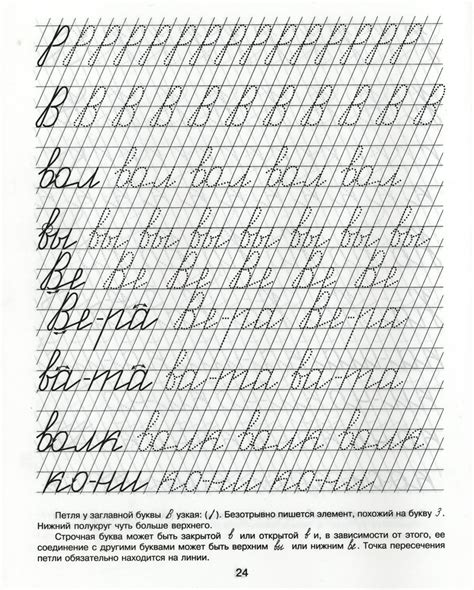 Р Р Р Р Р Р Р Р Р Р Р Р Р
В В В В В В В В В В В
вол вол вол вол вол
вы вы вы вы вы вы вы вы вы
Ве Ве Ве Ве Ве Ве
Ве-ра Ве-ра Ве-ра
ва-та ва-та ва-та
волк волк волк волк
ко-ни ко-ни ко-ни
Петля у заглавной буквы В узкая: (/). Безотрывно пишется элемент, похожий на букву З.
Нижний полукруг чуть больше верхнего.
Строчная буква может быть закрытой в или открытой в и, в зависимости от этого, ее
соединение с другими буквами может быть верхним вы или нижним ве. Точка пересечения
петли обязательно находится на линии.
24